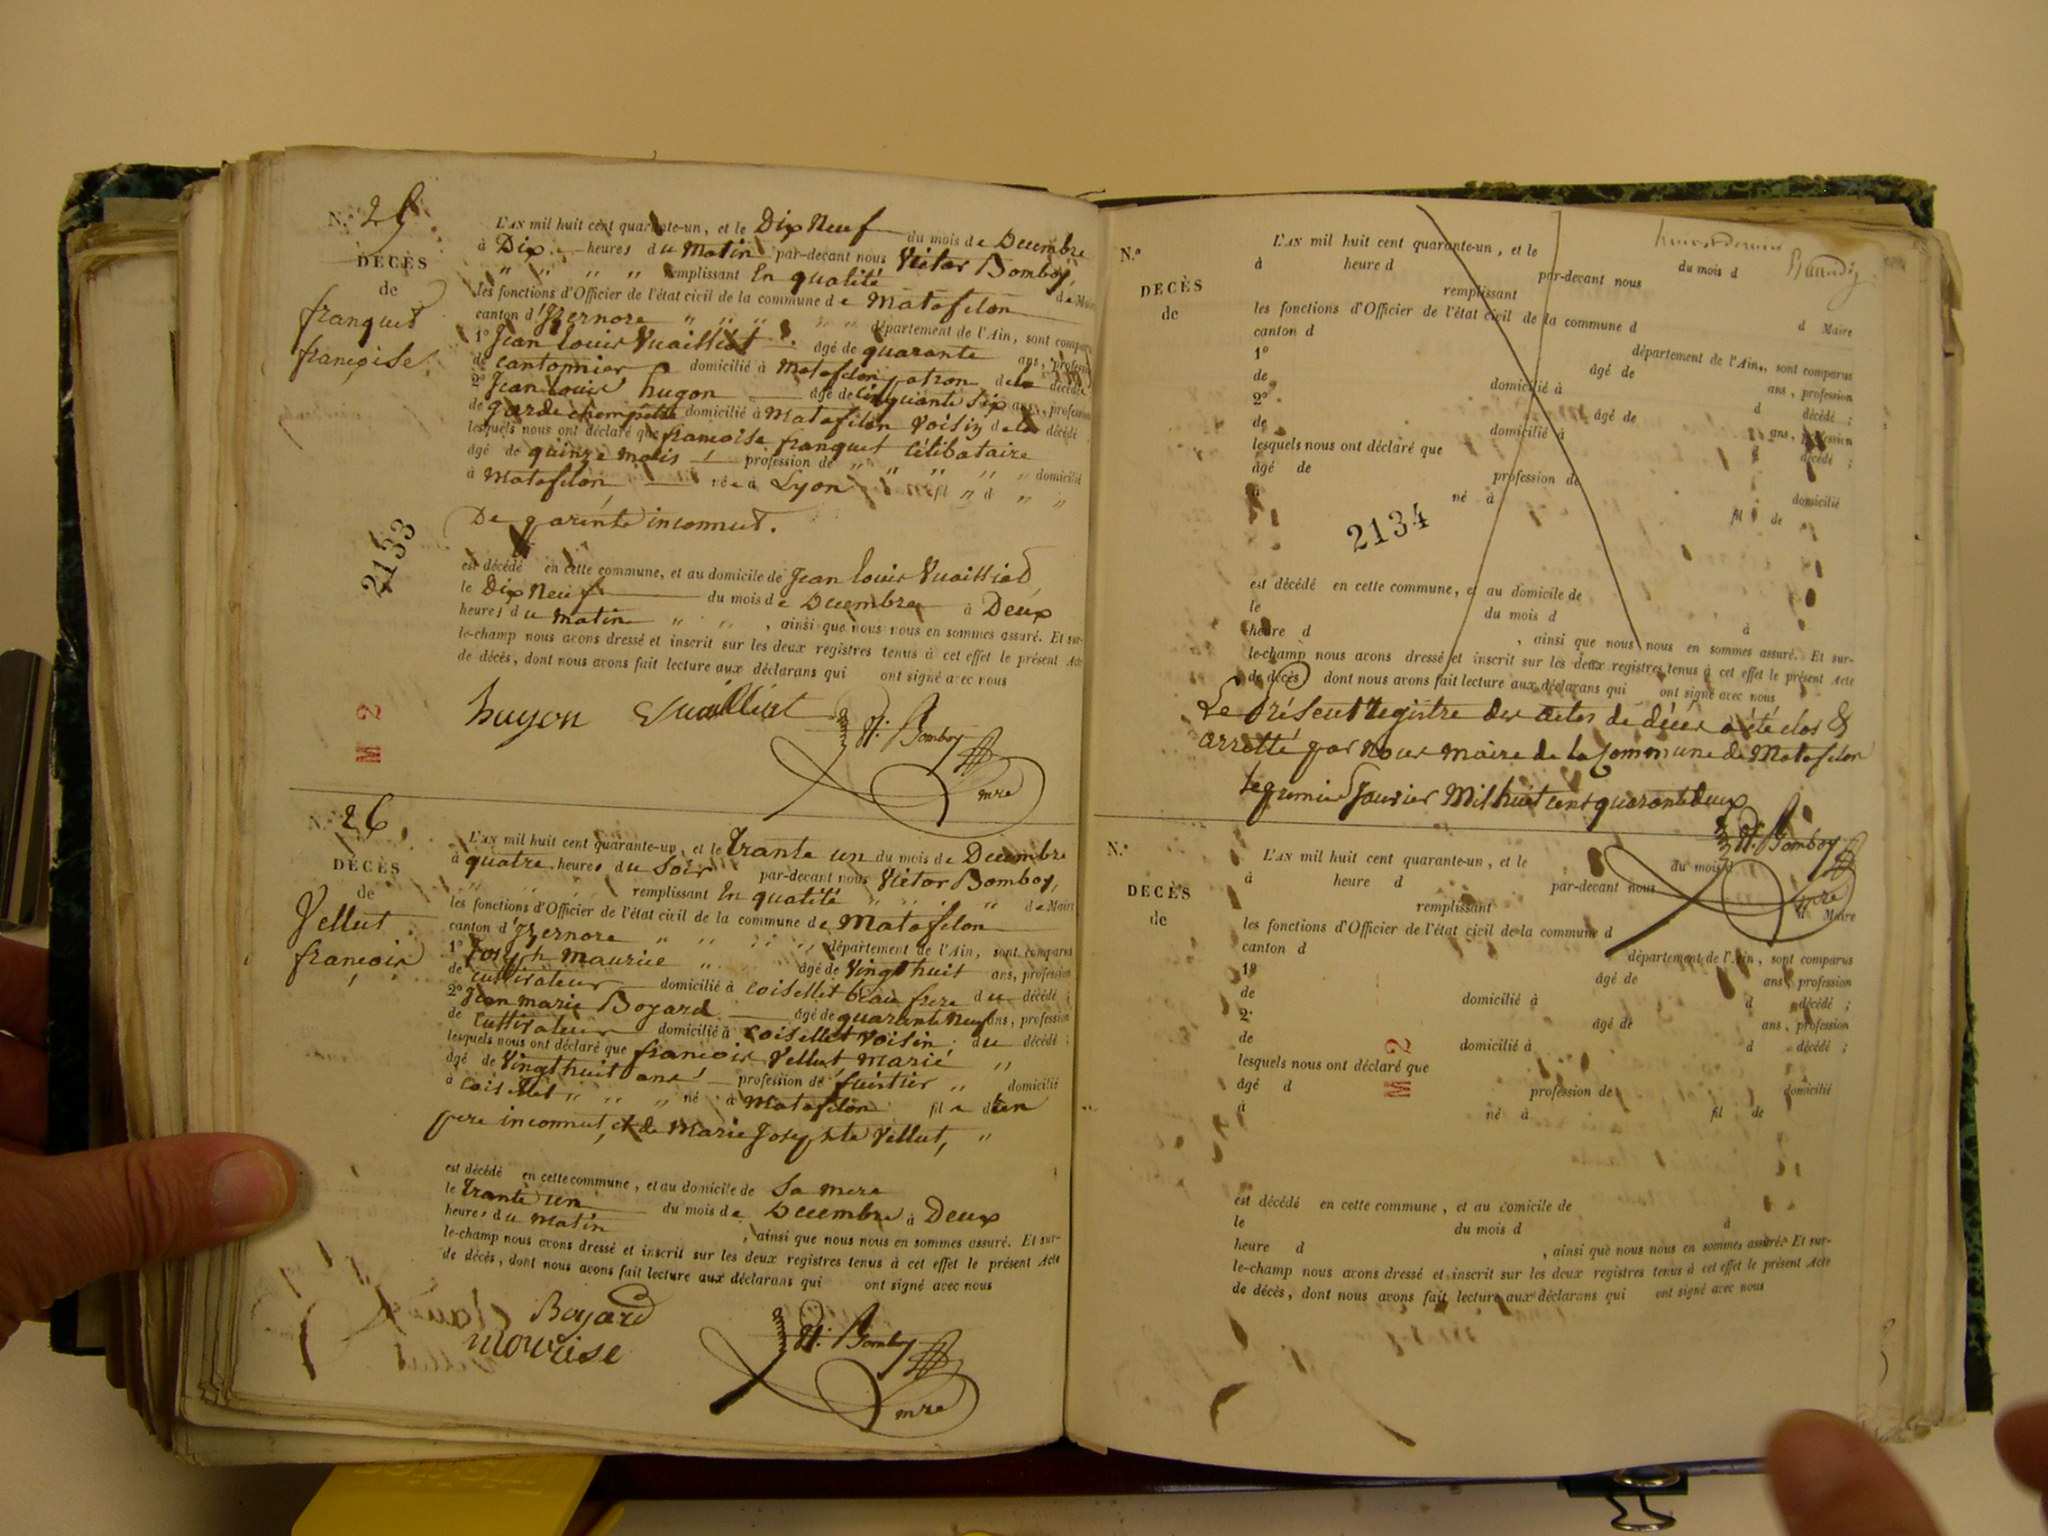 N.º 25
DECÈS
de
franquet
françoise
L'AN mil huit cent quarante-un, et le Dix Neuf du mois de Decembre
à Dix heures du Matin par-devant nous Victor Bomboy
" " " " remplissant En qualité de Maire
les fonctions d'Officier de l'état civil de la commune de Matafelon
canton d'Izernore " " " " " département de l'Ain, sont comparus
1º Jean Louis Vuailliat âgé de quarante ans, profession
de cantonnier domicilié à Matafelon patron de la décédé
2º Jean Louis hugon âgé de cinquante six ans, profession
de garde champetre domicilié à Matafelon Voisin de la décédé
lesquels nous ont déclaré que francoise franquet Célibataire
âgé de quinze mois profession de " " " " " domicilié
à Matafelon née à Lyon " " " fil " d " "
De parents inconnus.
2133
est décédé en cette commune, et au domicile de Jean Louis Vuailliat
le Dix Neuf du mois de Decembre à Deux
heures du matin " " , ainsi que nous nous en sommes assuré. Et sur-
le-champ nous avons dressé et inscrit sur les deux registres tenus à cet effet le présent Acte
de décès, dont nous avons fait lecture aux déclarans qui ont signé avec nous
M 2
hugon Vuailliat Vr. Bomboy
mre
N.º 26
DECÈS
de
Vellut
francois
L'AN mil huit cent quarante-un, et le Trante un du mois de Decembre
à quatre heures du Soir par-devant nous Victor Bomboy,
remplissant En qualité " " " de Maire
les fonctions d'Officier de l'état civil de la commune de Matafelon
canton d'Izernore " " " " département de l'Ain, sont comparus
1º Joseph maurice " " âgé de Vingt huit ans, profession
de cultivateur domicilié à Coisellet beau frere du décédé ;
2º Jean marie Boyard âgé de quarante Neuf ans, profession
de Cultivateur domicilié à Coisellet Voisin du décédé ;
lesquels nous ont déclaré que francois Vellut, marié "
âgé de Vingt huit ans profession de " domicilié
à Coisellet " " " né à Matafelon fil " d'un
pere inconnut, et de Marie Josephte Vellut, "
est décédé en cette commune, et au domicile de Sa mere
le Trante un du mois de Decembre à Deux
heures du Matin , ainsi que nous nous en sommes assuré. Et sur-
le-champ nous avons dressé et inscrit sur les deux registres tenus à cet effet le présent Acte
de décès, dont nous avons fait lecture aux déclarans qui ont signé avec nous
Boyard
mourise Vr. Bomboy
mre
N.º
DECÈS
de
L'AN mil huit cent quarante-un, et le du mois d
à heure d par-devant nous
remplissant d Maire
les fonctions d'Officier de l'état civil de la commune d
canton d département de l'Ain, sont comparus
1º âgé de ans, profession
de domicilié à d décédé ;
2º âgé de ans, profession
de domicilié à d décédé ;
lesquels nous ont déclaré que
âgé de profession de domicilié
à né à fil de
2134
est décédé en cette commune, et au domicile de
le du mois d à
heure d , ainsi que nous nous en sommes assuré. Et sur-
le-champ nous avons dressé et inscrit sur les deux registres tenus à cet effet le présent Acte
de décès, dont nous avons fait lecture aux déclarans qui ont signé avec nous
Le Présent Registre des actes de décès a été clos &
arretté par Nous maire de la Commune de Matafelon
le premier Janvier Mil huit cent quarante deux
Vr. Bomboy
mre
N.º
DECÈS
de
L'AN mil huit cent quarante-un, et le du mois d
à heure d par-devant nous
remplissant d Maire
les fonctions d'Officier de l'état civil de la commune d
canton d département de l'Ain, sont comparus
1º âgé de ans, profession
de domicilié à d décédé ;
2º âgé de ans, profession
de domicilié à d décédé ;
lesquels nous ont déclaré que
âgé d profession de domicilié
à né à fil de
M 2
est décédé en cette commune, et au domicile de
le du mois d à
heure d , ainsi que nous nous en sommes assuré. Et sur-
le-champ nous avons dressé et inscrit sur les deux registres tenus à cet effet le présent Acte
de décès, dont nous avons fait lecture aux déclarans qui ont signé avec nous